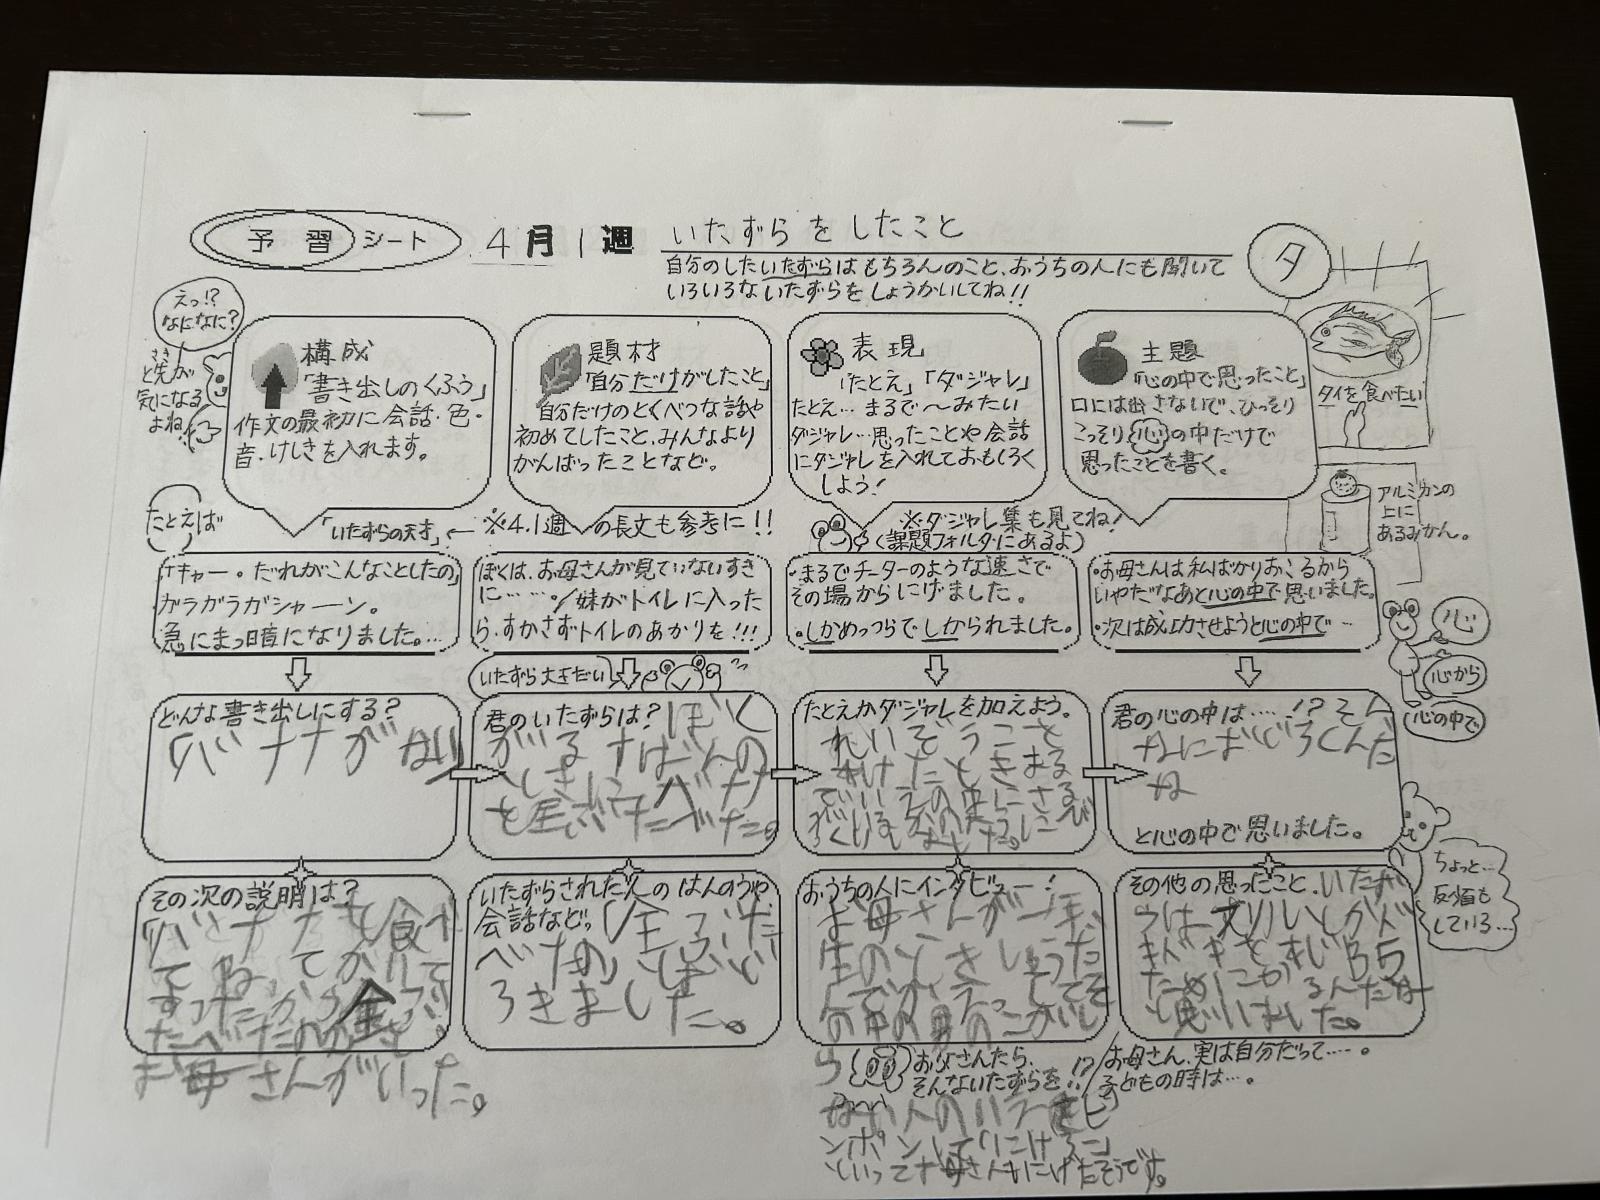 予習シート 4月1週 いたずらをしたこと
自分のしたいたずらはもちろんのこと、おうちの人にも聞いて
いろいろないたずらをしょうかいしてね!!
タ
タイを食べたい
えっ!?
なになに?
さき
と先が
気になる
よね。
構成
「書き出しのくふう」
作文の最初に会話・色・
音・けしきを入れます。
題材
「自分だけがしたこと」
自分だけのとくべつな話や
初めてしたこと、みんなより
がんばったことなど。
表現
「たとえ」「ダジャレ」
たとえ…まるで〜みたい
ダジャレ…思ったことや会話
にダジャレを入れておもしろく
しよう!
主題
「心の中で思ったこと」
口には出さないで、ひっそり
こっそり心の中だけで
思ったことを書く。
アルミカンの
上に
あるみかん。
たとえば
「いたずらの天才」←※4.1週の長文も参考に!!
※ダジャレ集も見てね!
(課題フォルダにあるよ)
「キャー。だれがこんなことしたの」
ガラガラガシャーン。
急にまっ暗になりました。…
ぼくは、お母さんが見ていないすき
に……。/妹がトイレに入った
ら、すかさずトイレのあかりを!!!
・まるでチーターのような速さで
その場からにげました。
・しかめっつらでしかられました。
・お母さんは私ばかりおこるから
いやだなあと心の中で思いました。
・次は成功させようと心の中で…
心
心から
心の中で
いたずら大王だい
どんな書き出しにする?
「バナナがない」
君のいたずらは?ぼく
がるすばんの
ときに
を全ぶたべた。
たとえかダジャレを加えよう。
君の心の中は……!?そん
なにおどろくんだ
ね
と心の中で思いました。
その次の説明は?
お母さんがいった。
いたずらされた人のはんのうや
会話など。「全ぶた
べたの」
ろきました。
おうちの人にインタビュー!
お母さんが一年
生のとき
お父さんたら、
そんないたずらを!?
お母さん、実は自分だって…。
子どもの時は…。
ンポンして「にげろ」
といってお母さんもにげたそうです。
その他の思ったこと、いたず
と思いました。
ちょっと…
反省も
している…